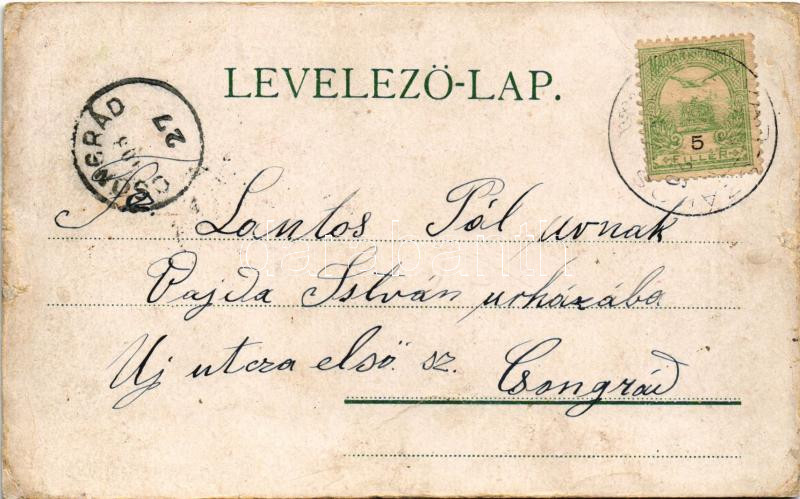 LEVELEZŐ-LAP.
CSONGRÁD
27
MAGYAR KIR. POSTA
5
FILLÉR
Lantos Pál urnak
Vajda István urházába
Uj utcza első sz.
Csongrád
darabanth